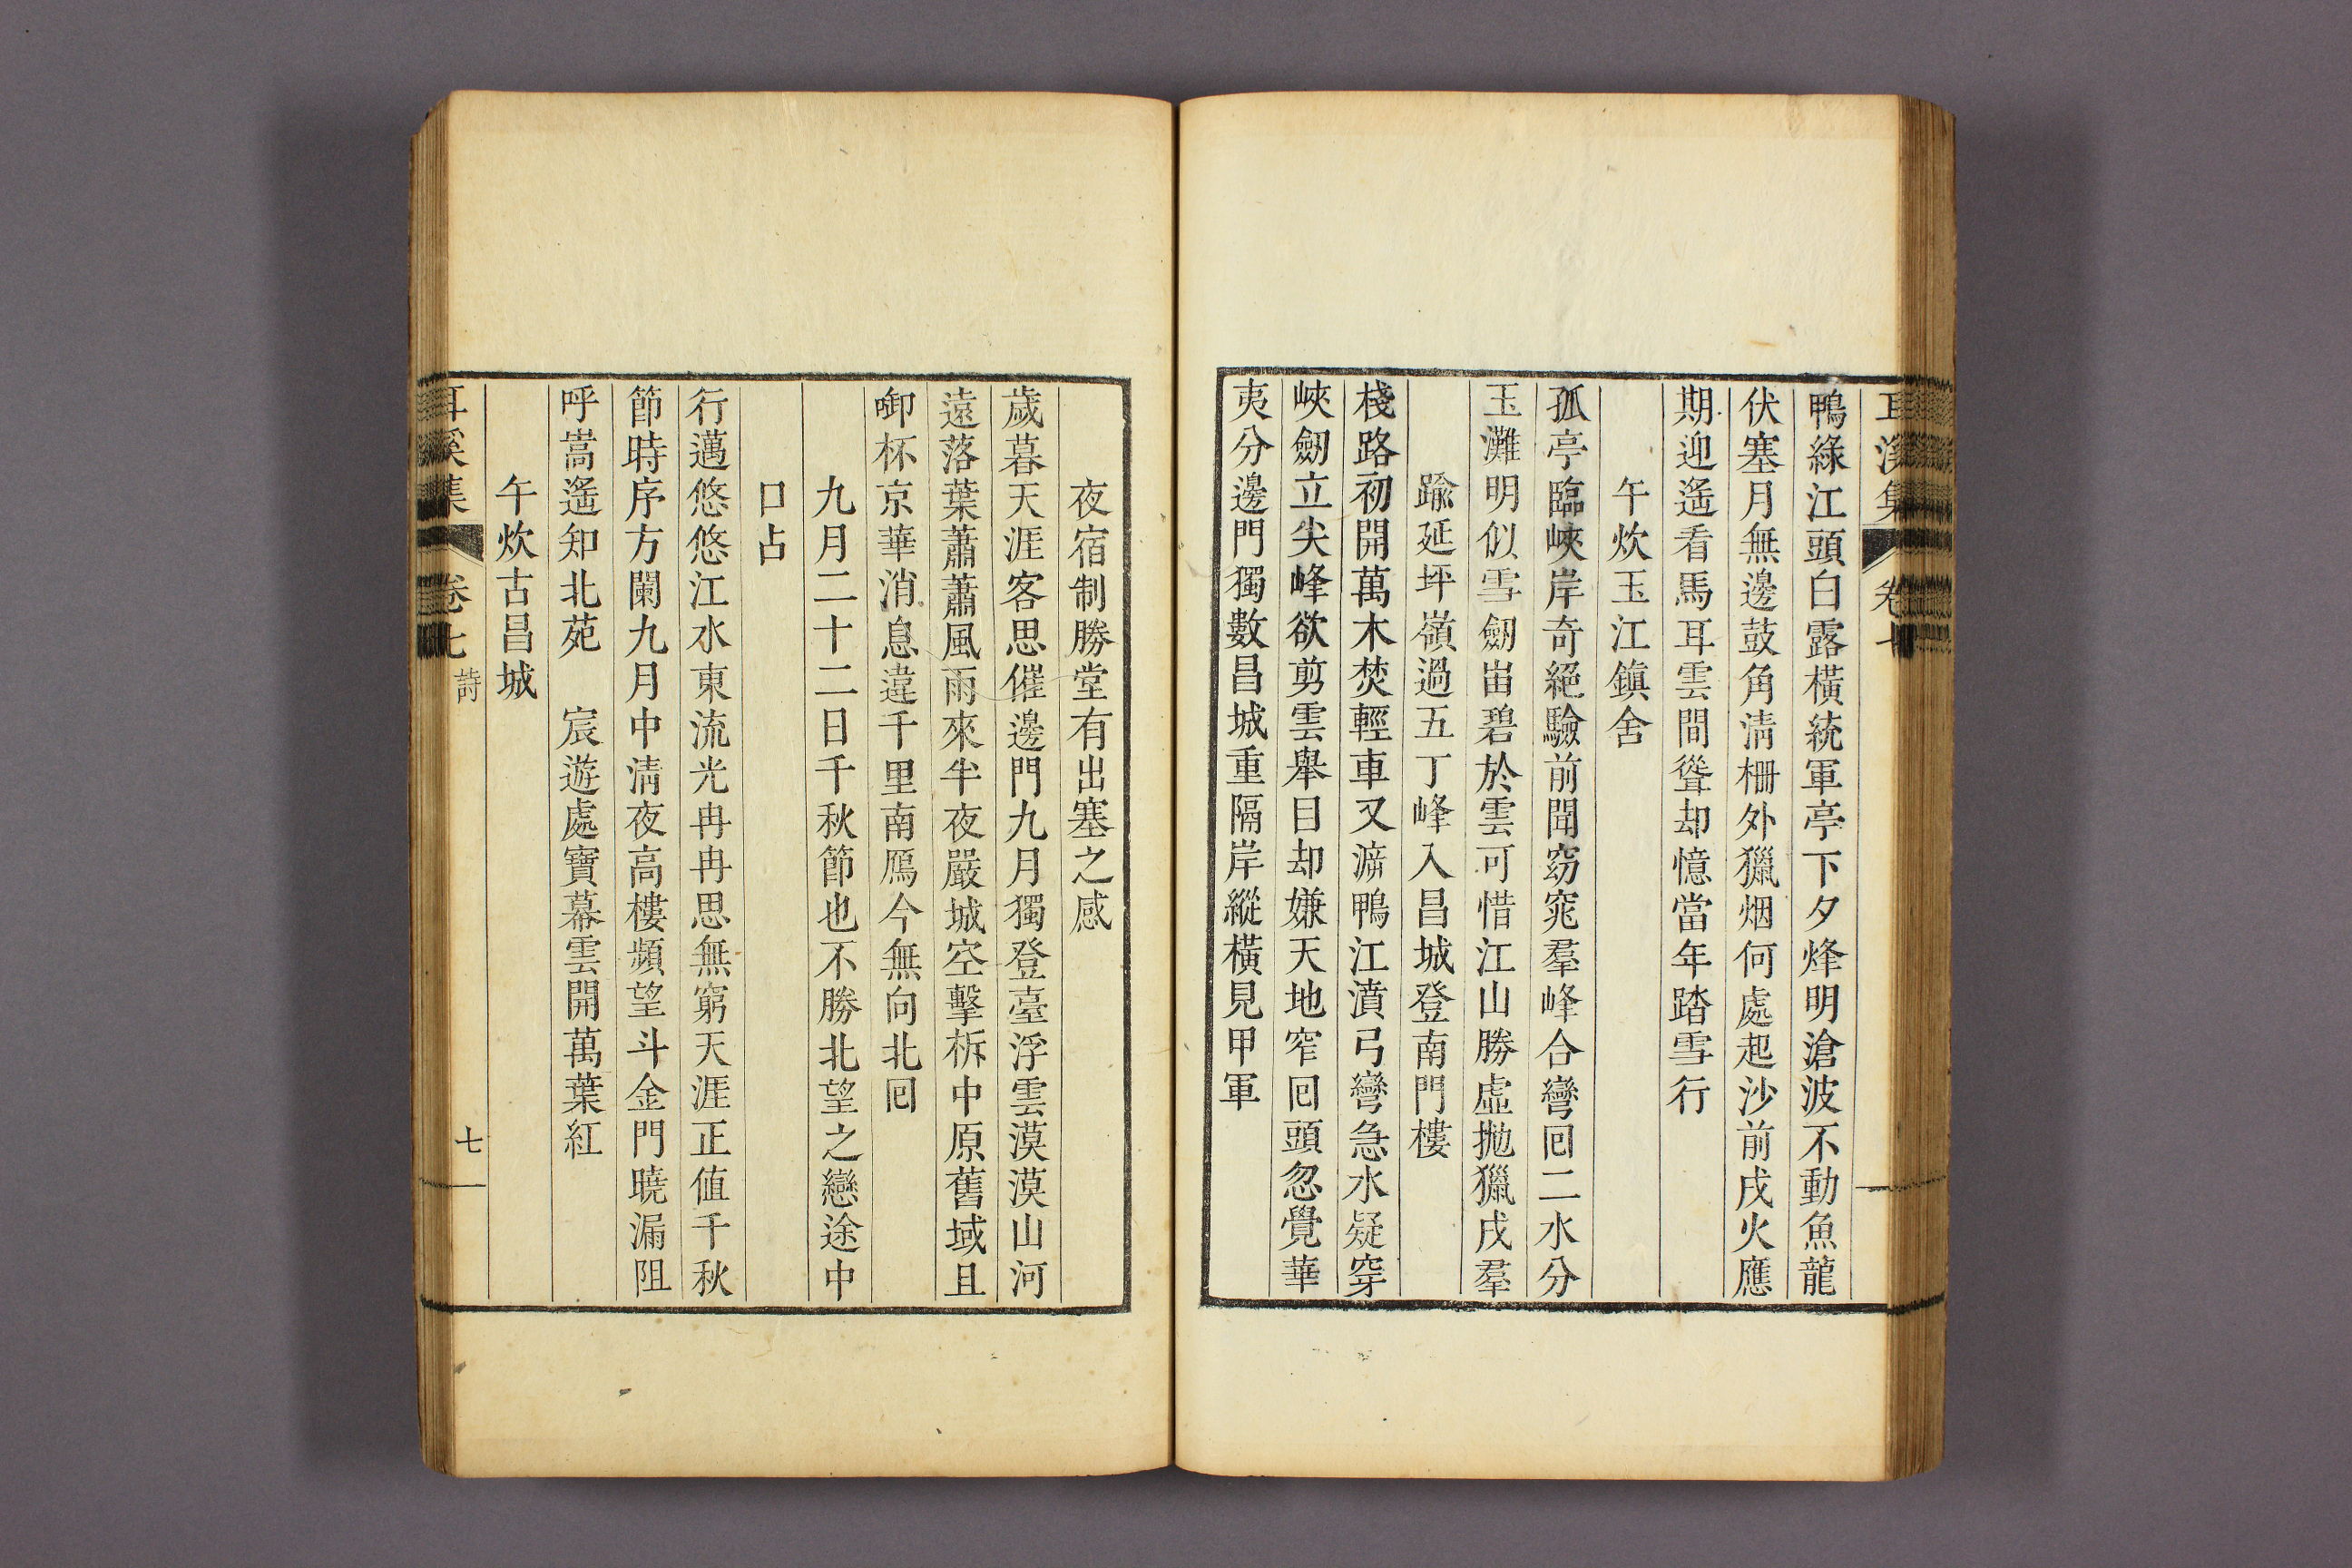 耳溪集 卷七
鴨綠江頭白露橫統軍亭下夕烽明滄波不動魚龍
伏塞月無邊鼓角淸柵外獵烟何處起沙前戍火應
期迎遙看馬耳雲間聳却憶當年踏雪行
午炊玉江鎭舍
孤亭臨峽岸奇絕驗前聞窈窕羣峰合彎回二水分
玉灘明似雪劒峀碧於雲可惜江山勝虛抛獵戍羣
踰延坪嶺過五丁峰入昌城登南門樓
棧路初開萬木焚輕車又㵼鴨江濆弓彎急水疑穿
峽劒立尖峰欲剪雲舉目却嫌天地窄回頭忽覺華
夷分邊門獨數昌城重隔岸縱橫見甲軍
夜宿制勝堂有出塞之感
歲暮天涯客思催邊門九月獨登臺浮雲漠漠山河
遠落葉蕭蕭風雨來半夜嚴城空擊柝中原舊域且
啣杯京華消息違千里南鴈今無向北回
九月二十二日千秋節也不勝北望之戀途中
口占
行邁悠悠江水東流光冉冉思無窮天涯正値千秋
節時序方闌九月中淸夜高樓頻望斗金門曉漏阻
呼嵩遙知北苑 宸遊處寶幕雲開萬葉紅
午炊古昌城
耳溪集 卷七 詩 七